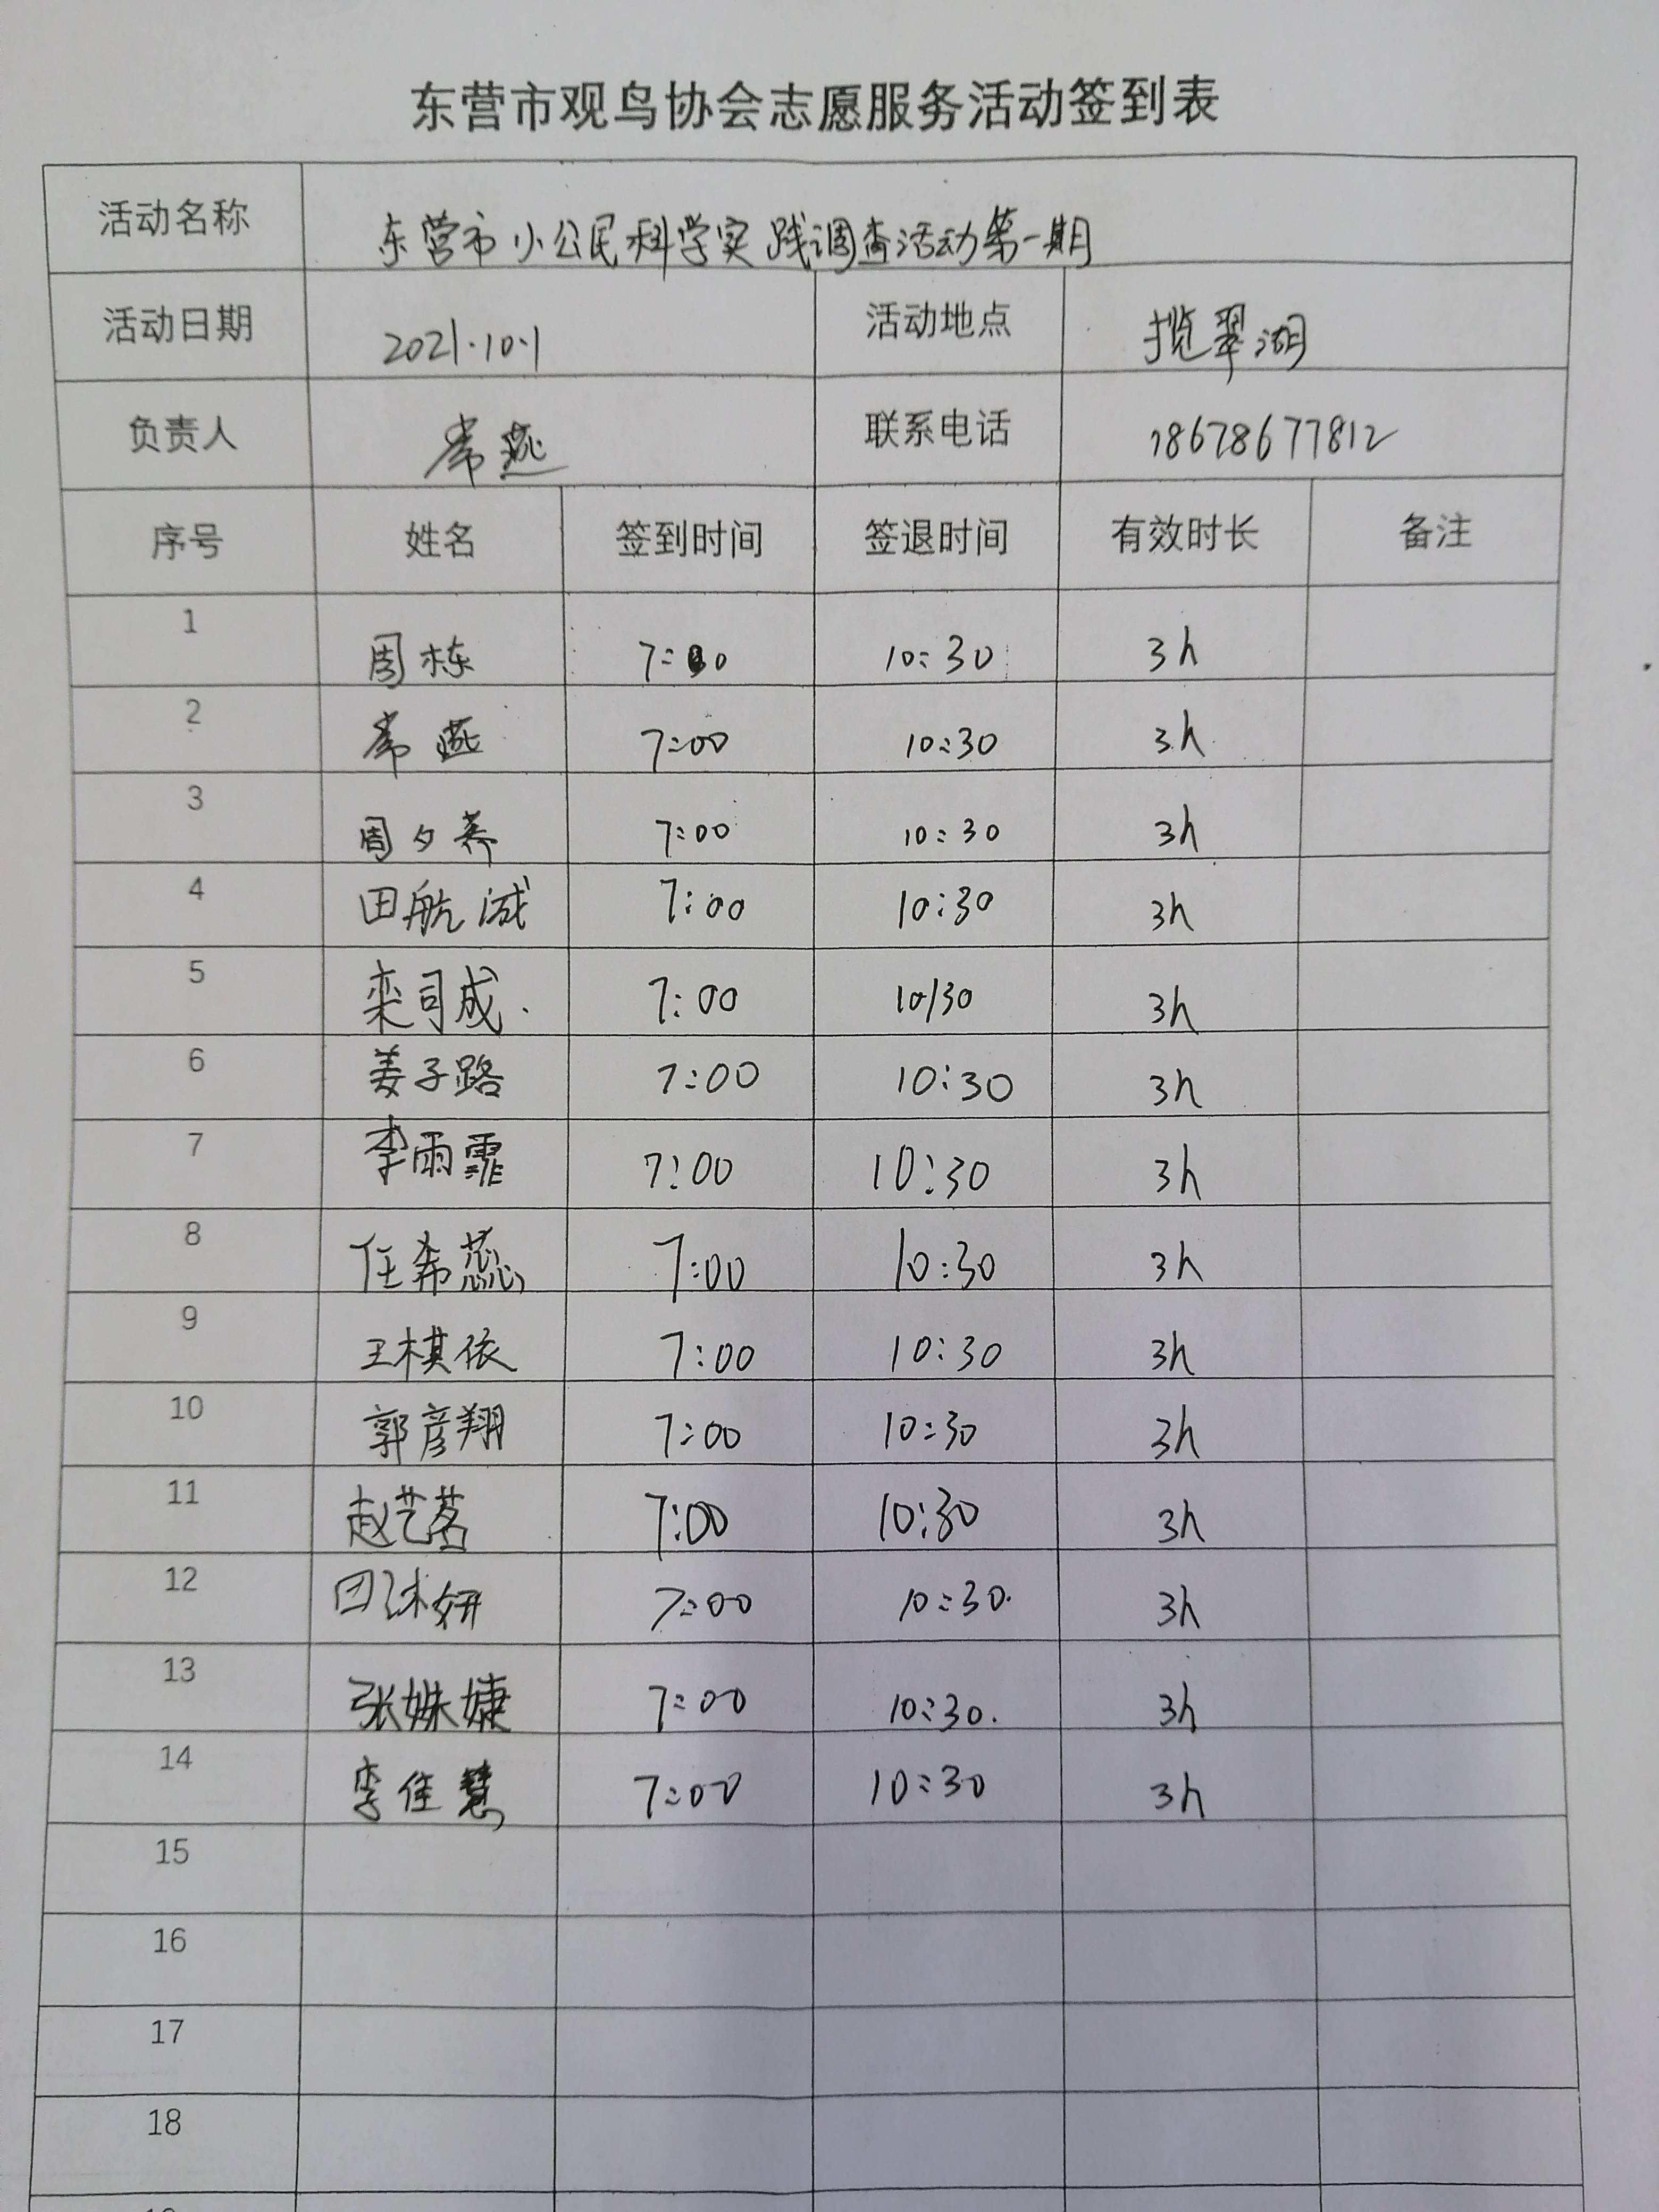 东营市观鸟协会志愿服务活动签到表
活动名称 东营市小公民科学实践调查活动第一期
活动日期 2021.10.1 活动地点 揽翠湖
负责人 常燕 联系电话 18678677812
序号 姓名 签到时间 签退时间 有效时长 备注
1 周栋 7:00 10:30 3h
2 常燕 7:00 10:30 3h
3 周夕荞 7:00 10:30 3h
4 田航诚 7:00 10:30 3h
5 栾司成 7:00 10/30 3h
6 姜子路 7:00 10:30 3h
7 李雨霏 7:00 10:30 3h
8 任希蕊 7:00 10:30 3h
9 王棋依 7:00 10:30 3h
10 郭彦翔 7:00 10:30 3h
11 赵艺茗 7:00 10:30 3h
12 田沐妍 7:00 10:30 3h
13 张姝婕 7:00 10:30. 3h
14 李佳慧 7:00 10:30 3h
15
16
17
18